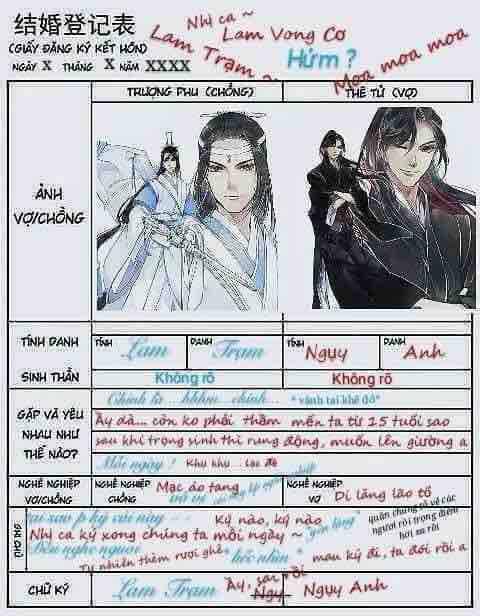 结婚登记表
(GIẤY ĐĂNG KÝ KẾT HÔN)
NGÀY X THÁNG X NĂM XXXX
Nhị ca ~
Lam Trạm ~
Lam Vong Cơ
Hửm ?
Moa moa moa
TRƯỢNG PHU (CHỒNG) THÊ TỬ (VỢ)
ẢNH VỢ/CHỒNG
TÍNH DANH TÍNH Lam DANH Trạm TÍNH Ngụy DANH Anh
SINH THẦN Không rõ Không rõ
GẶP VÀ YÊU NHAU NHƯ THẾ NÀO?
Chính là ...hhhm...chính... *vành tai khẽ đỏ*
Ầy dà... còn ko phải thầm mến ta từ 15 tuổi sao
sau khi trọng sinh thì rung động, muốn lên giường a
Mỗi ngày! Khụ khụ... lạc đề
NGHỀ NGHIỆP VỢ/CHỒNG NGHỀ NGHIỆP CHỒNG Mạc áo tang NGHỀ NGHIỆP VỢ Di lăng lão tổ
tại sao p ký cái này Ký nào, ký nào
Nhị ca ký xong chúng ta mỗi ngày ~
quần chúng tò vẽ các người rồi trọng điểm hơi sa rồi
Tự nhiên thèm rượi ghê mau ký đi, ta đói rồi a
CHỮ KÝ Lam Trạm Ầy, sai rồi Ngụy Ngụy Anh